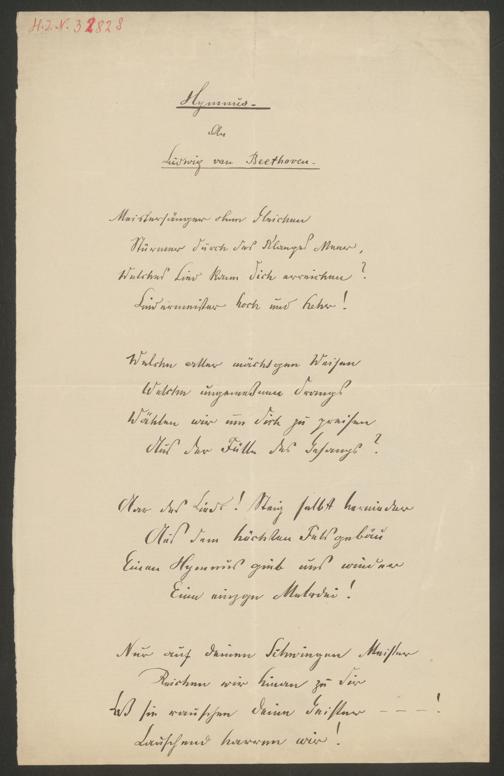 H.I.N. 32828
Hymnus.
An
Ludwig van Beethoven.
Meistersänger ohne Gleichen
Stürmer durch des Klanges Meer,
Welches Lied kann dich erreichen?
Liedermeister hoch und hehr!
Welche aller mächtgen Weisen
Welche ungemeßnen Drangs
Wählen wir um dich zu preisen
Aus der Fülle des Gesangs?
Aar des Lieds! Steig selbst hernieder
Aus dem höchsten Felsgebäu
Einen Hymnus gieb uns wieder
Eine einzge Melodei!
Nur auf deinen Schwingen Meister
Reichen wir hinan zu dir
sie rauschen deine Geister - - - !
Lauschend harren wir!